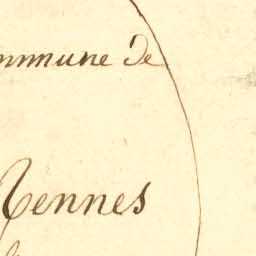 ommune de
Rennes